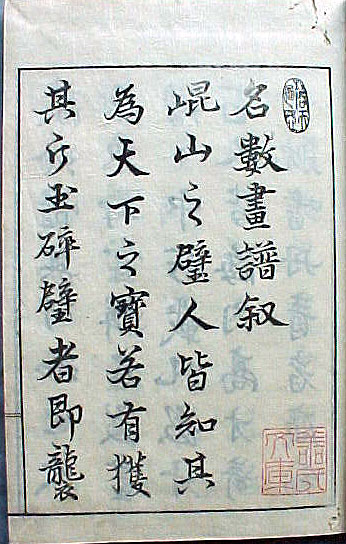 名數畫譜叙
崐山之璧人皆知其
為天下之寶若有獲
其片玉碎璧者即襲